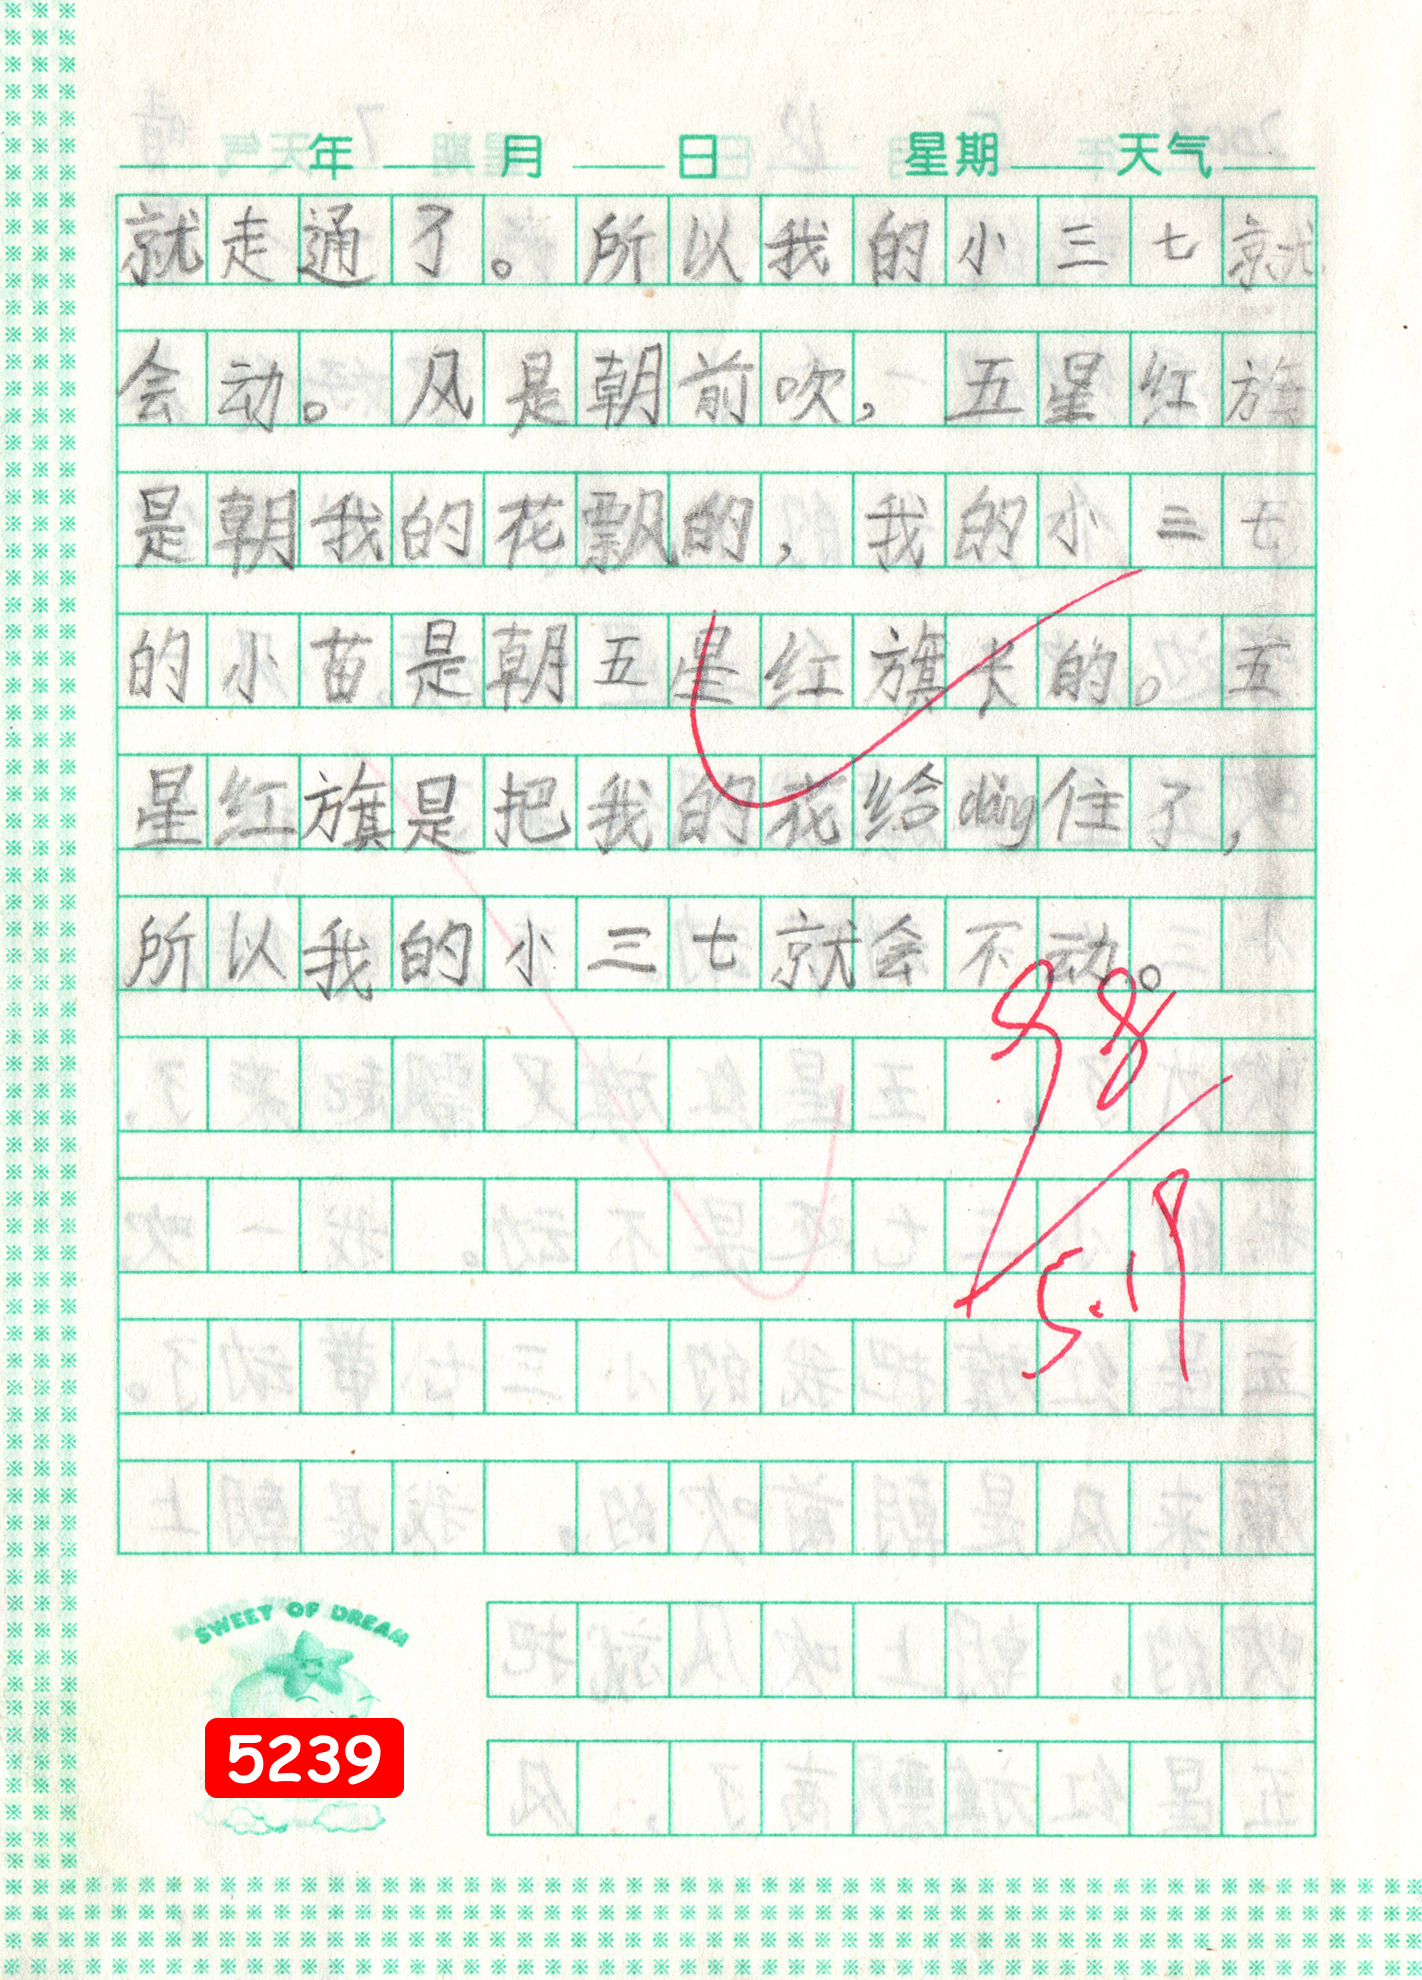 年 月 日 星期 天气
就走通了。所以我的小三七就
会动。风是朝前吹，五星红旗
是朝我的花飘的，我的小三七
的小苗是朝五星红旗长的。五
星红旗是把我的花给dǎng住了，
所以我的小三七就会不动。
98
5.19
SWEET OF DREAM
5239